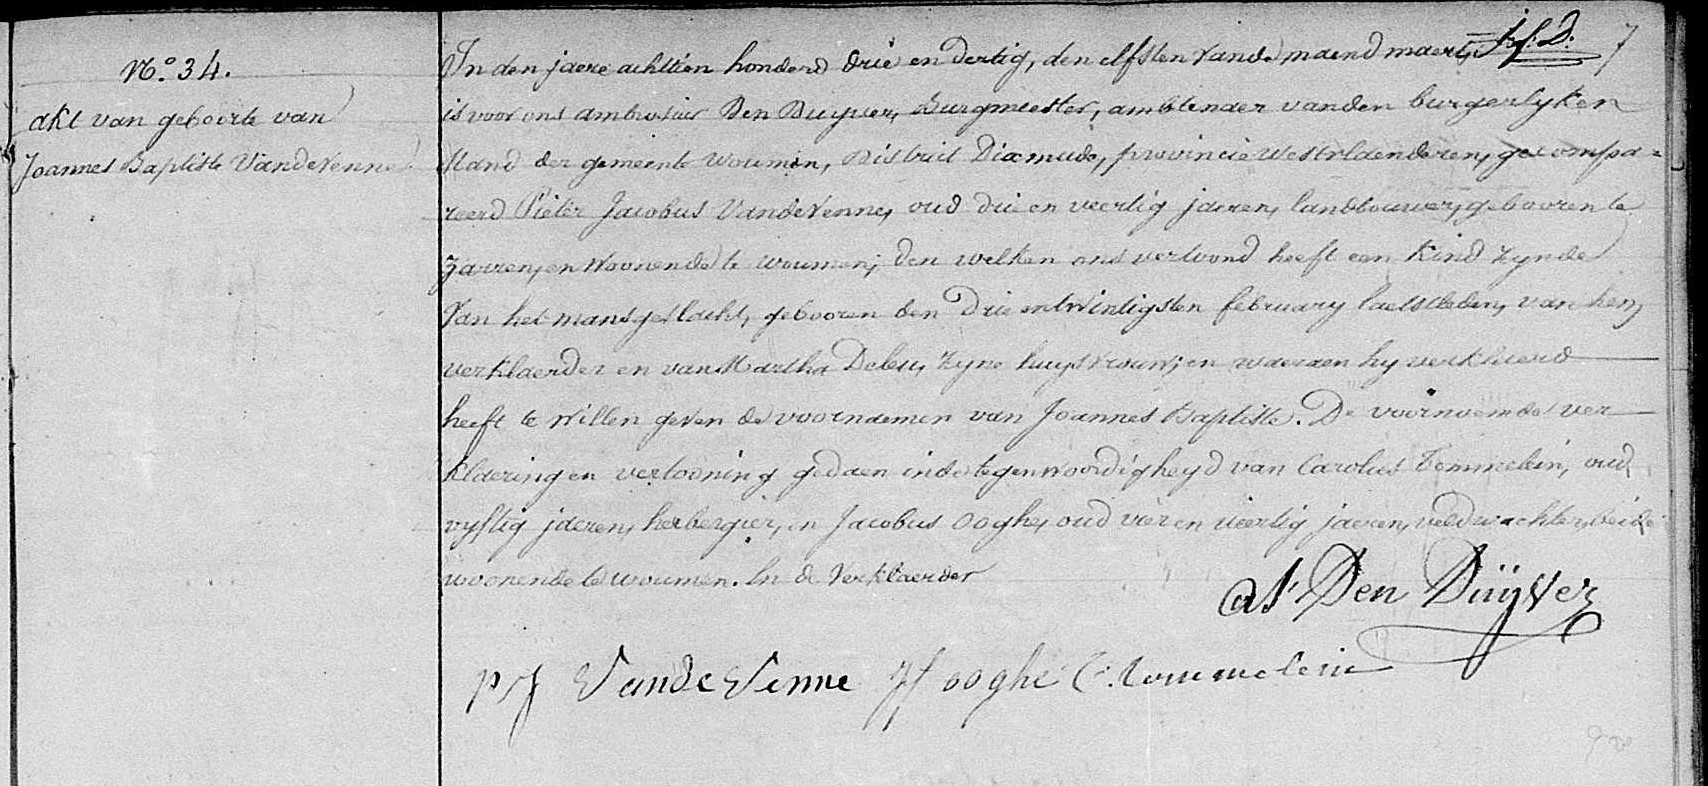 N.o 34.
akt van geboorte van
Joannes Baptiste Vandevenne
In den jaere achttien honderd drie en dertig, den elfsten vande maend maert, 7
is voor ons ambrosius Den Duyver, Burgmeester, ambtenaer vanden burgerlyken
stand der gemeente woumen, District Dixmude, provincie westvlaenderen, gecompa=
reerd Pieter Jacobus Vandevenne, oud drie en veertig jaeren, landbouwer, gebooren te
zarren, en woonende te woumen; den welken ons vertoond heeft een kind zynde
van het mansgeslacht, gebooren den drie entwintigsten february laetstleden, van hem
verklaerder en van Martha Debeu, zyne huysvrouw; en waeraen hy verklaerd
heeft te willen geven de voornaemen van Joannes Baptiste. De voornoemde ver
klaering en vertooning gedaen inde tegenwoordigheyd van Carolus Tommelein, oud
vyftig jaeren, herbergier, en Jacobus Ooghe, oud vier en veertig jaeren, veldwachter, beide
woonende te woumen. En de verklaerder
As Den Duÿver
pJ VandeVenne J ooghe C: tommelein